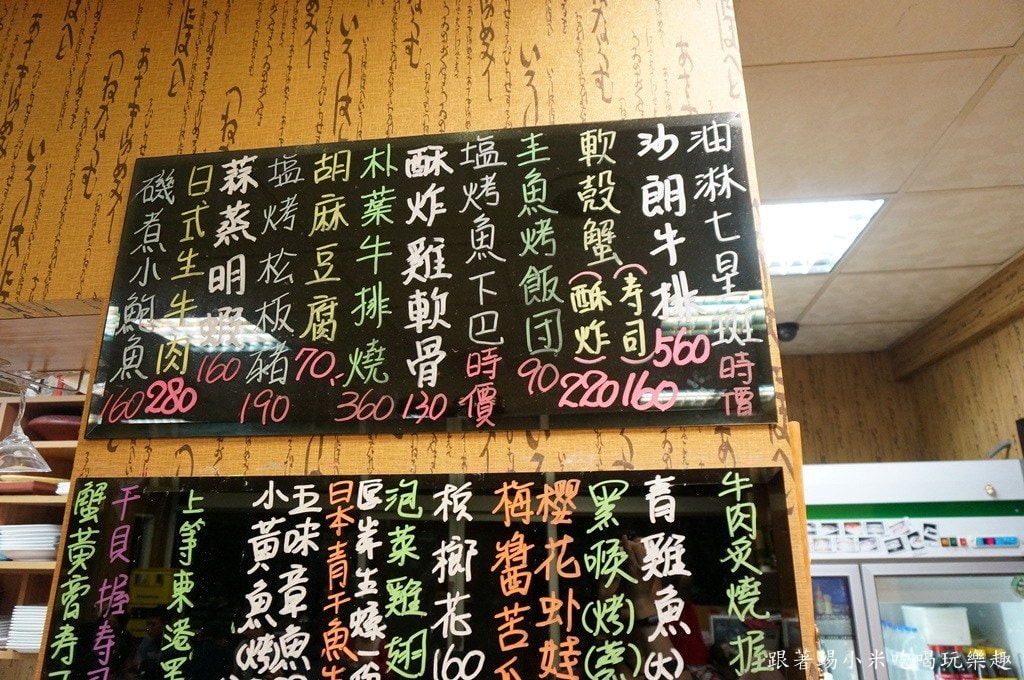 油淋七星斑 時價
沙朗牛排 560
軟殼蟹 (壽司) 160 (酥炸) 220
圭魚烤飯団 90
塩烤魚下巴 時價
酥炸雞軟骨 130
朴葉牛排燒 360
胡麻豆腐 70.-
塩烤松板豬 190
蒜蒸明蝦 160
日式生牛肉 280
磯煮小鮑魚 160
牛肉炙燒握
青雞魚(大)
黑喉(烤)(蒸)
櫻花蝦
梅醬苦
梹榔花 160
泡菜雞翅
厚岸生蠔一
日本青干魚
五味章魚
小黃魚(烤
上等東港黑
干貝握壽司
蟹黃膏壽
跟著踢小米吃喝玩樂趣